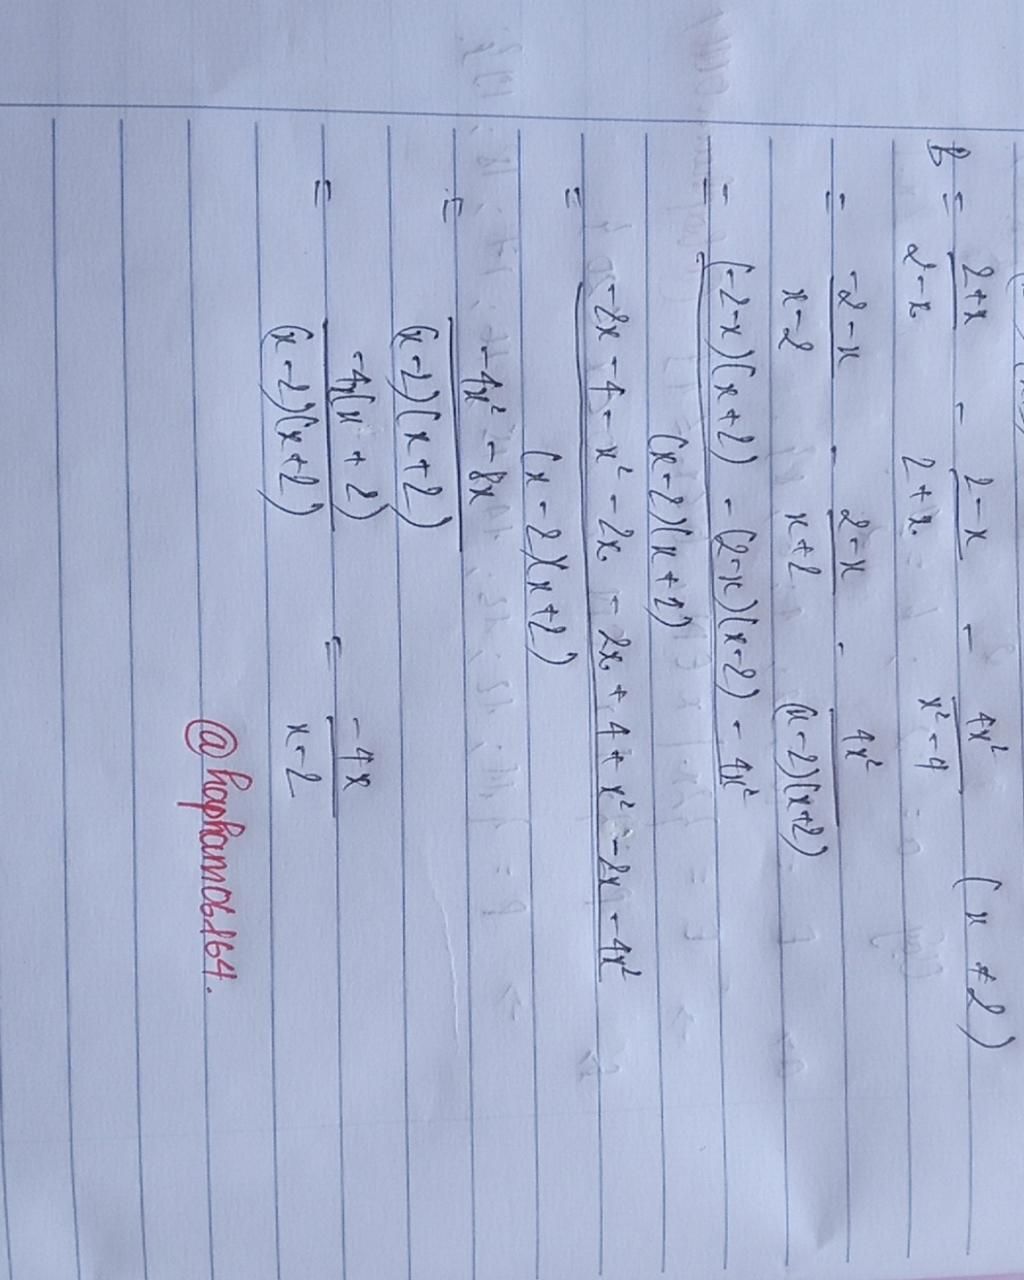 B = (2+x)/(2-x) - (2-x)/(2+x) - 4x²/(x²-4) (x ≠ 2)
= (-2-x)/(x-2) - (2-x)/(x+2) - 4x²/((x-2)(x+2))
= ((-2-x)(x+2) - (2-x)(x-2) - 4x²)/((x-2)(x+2))
= (-2x - 4 - x² - 2x - 2x + 4 + x² - 2x - 4x²)/((x-2)(x+2))
= (-4x² - 8x)/((x-2)(x+2))
= (-4x(x+2))/((x-2)(x+2)) = (-4x)/(x-2)
@hapham06164.